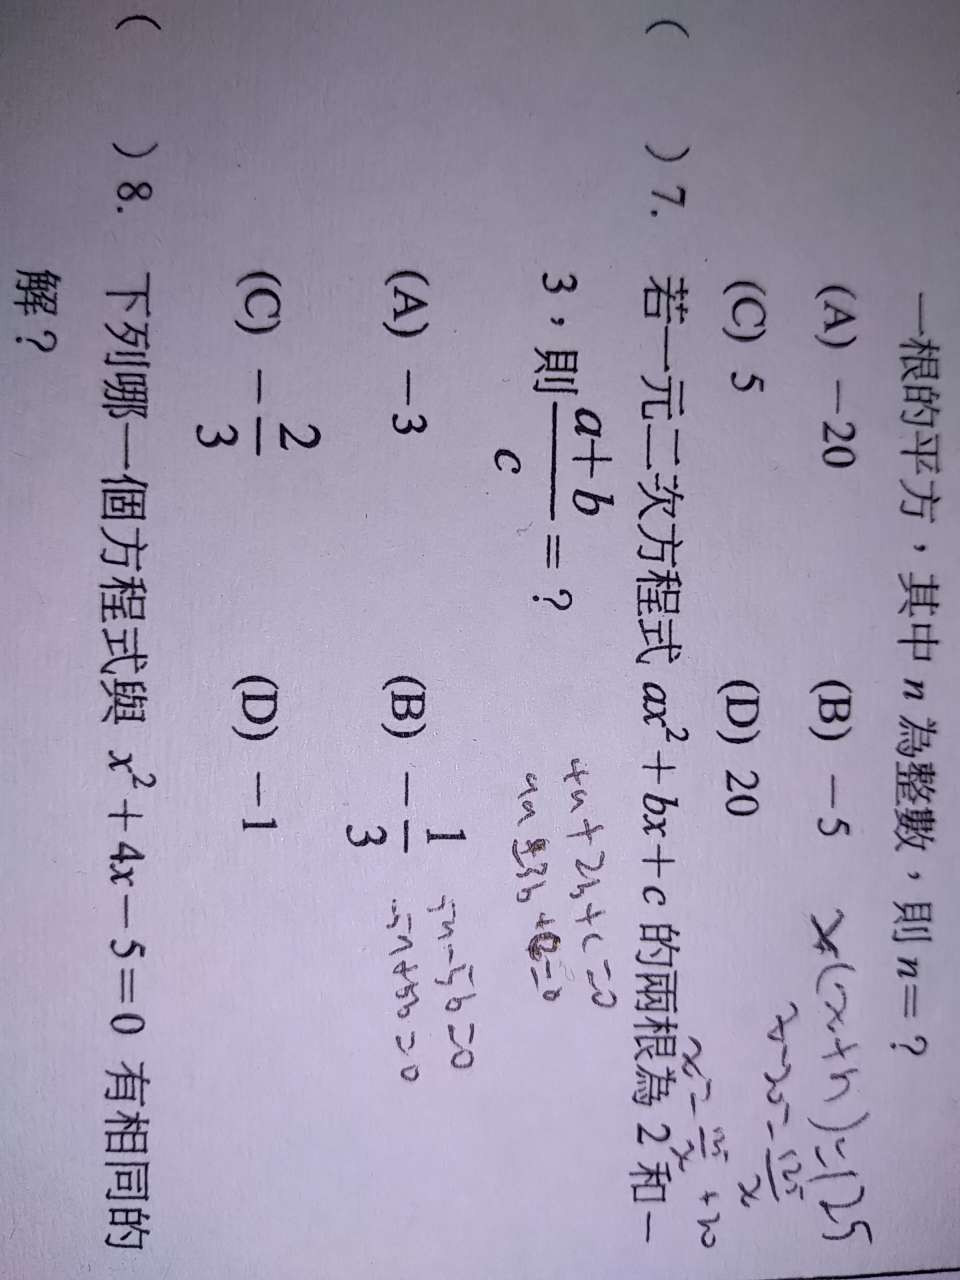 一根的平方，其中 n 為整數，則 n＝？
(A) －20 (B) －5
(C) 5 (D) 20
x(x+n)=125
( ) 7. 若一元二次方程式 ax²＋bx＋c 的兩根為 2 和－
3，則 \frac{a+b}{c}＝？
4a+2b+c=0
(A) －3 (B) －\frac{1}{3}
5a-5b=0
(C) －\frac{2}{3} (D) －1
( ) 8. 下列哪一個方程式與 x²＋4x－5＝0 有相同的
解？